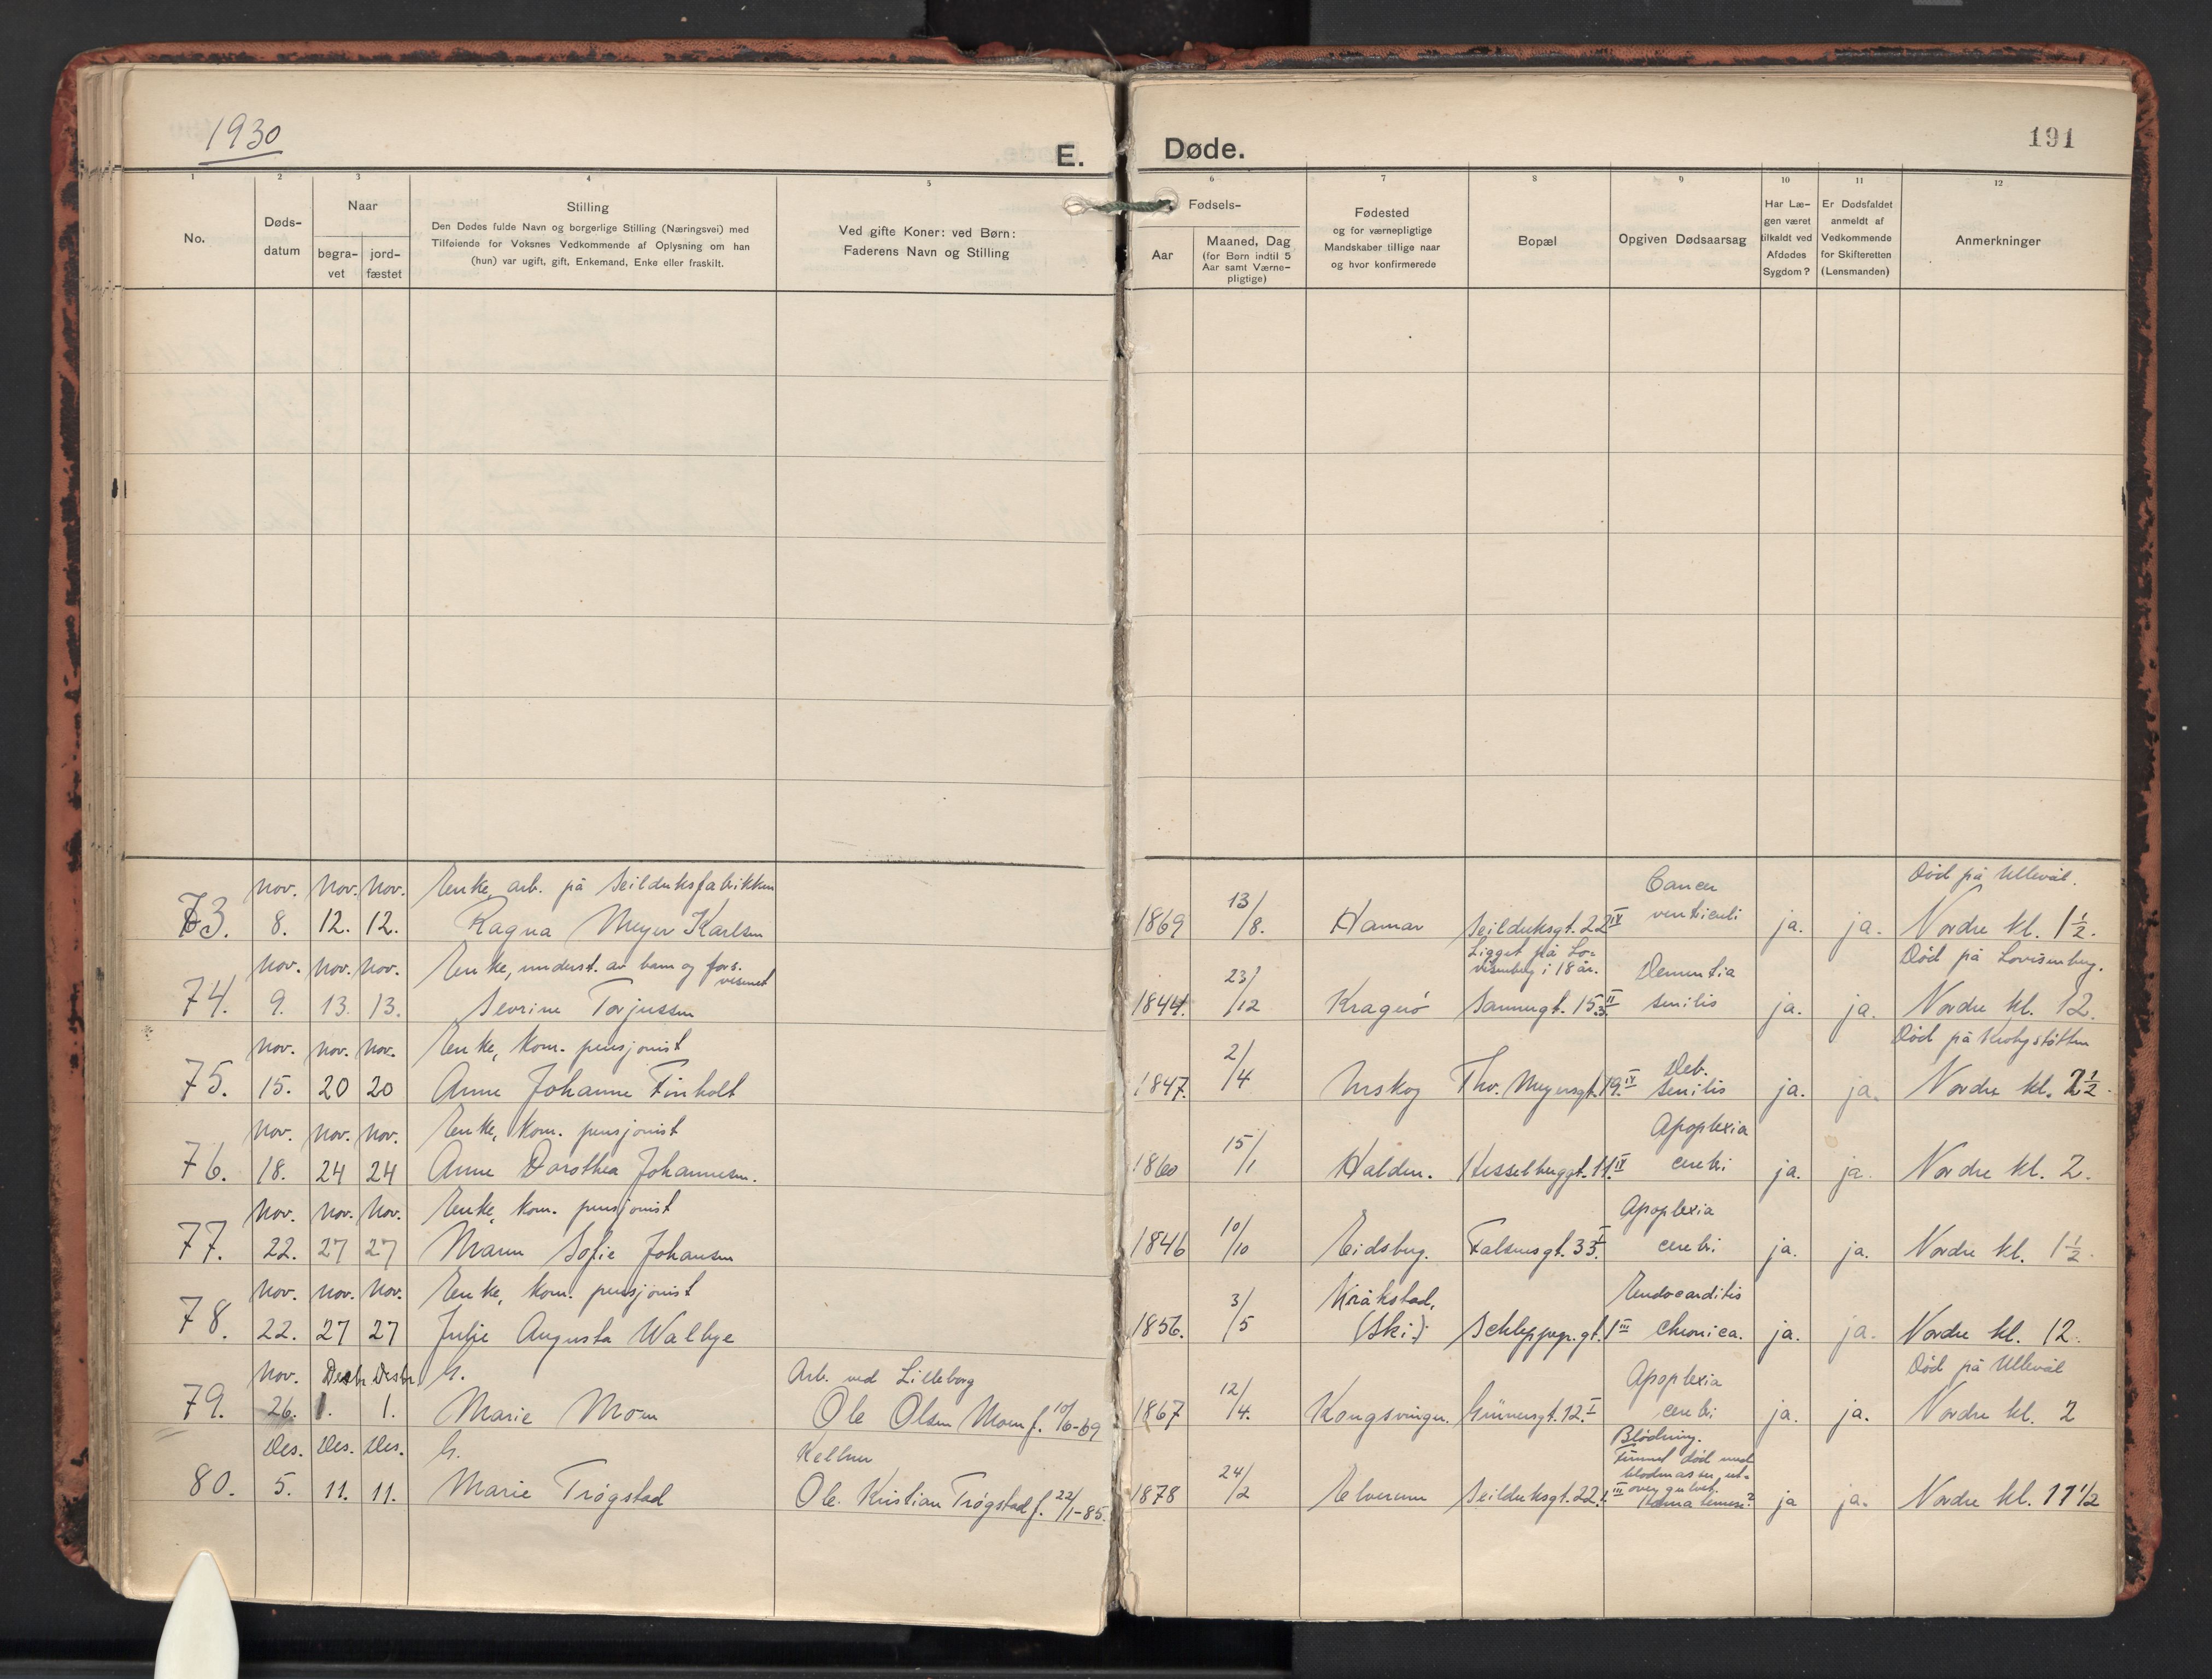 1930
E. Døde.
191
1 2 3 4 5 6 7 8 9 10 11 12
No.
Døds-
datum
Naar
begra-
vet
jord-
fæstet
Stilling
Den Dødes fulde Navn og borgerlige Stilling (Næringsvei) med
Tilføiende for Voksnes Vedkommende af Oplysning om han
(hun) var ugift, gift, Enkemand, Enke eller fraskilt.
Ved gifte Koner: ved Børn:
Faderens Navn og Stilling
Fødsels-
Aar
Maaned, Dag
(for Børn indtil 5
Aar samt Værne-
pligtige)
Fødested
og for værnepligtige
Mandskaber tillige naar
og hvor konfirmerede
Bopæl
Opgiven Dødsaarsag
Har Læ-
gen været
tilkaldt ved
Afdødes
Sygdom?
Er Dødsfaldet
anmeldt af
Vedkommende
for Skifteretten
(Lensmanden)
Anmerkninger
Nov. Nov. Nov. Enke, arb. på Seilduksfabrikken Cancer Død på Ullevål.
73. 8. 12. 12. Ragna Meyer Karlsen 1869 13/8. Hamar Seilduksgt. 22 IV ventriculi ja. ja. Nordre kl. 1 1/2.
Nov. Nov. Nov. Enke, underst. av barn og fors. Ligget på Lo- Død på Lovisenberg.
vesenet visenberg i 18 år. Dementia
74. 9. 13. 13. Sevrine Torjussen 1844. 23/12 Kragerø Sannergt. 15 II senilis ja. ja. Nordre kl. 12.
Nov. Nov. Nov. Enke, kom. pensjonist Deb. Død på
75. 15. 20 20 Anne Johanne Finholt 1847. 2/4 Urskog Thv. Meyersgt. 19 IV senilis ja. ja. Nordre kl. 2 1/2.
Nov. Nov. Nov. Enke, kom. pensjonist Apoplexia
76. 18. 24 24 Anne Dorothea Johannesen. 1860 15/1 Halden. Hesselberggt. 11 IV cerebri ja. ja. Nordre kl. 2.
Nov. Nov. Nov. Enke, kom. pensjonist Apoplexia
77. 22. 27 27 Maren Sofie Johansen 1846 10/10 Eidsberg. Falsensgt. 33 I. cerebri ja. ja. Nordre kl. 1 1/2.
Nov. Nov. Nov. Enke, kom. pensjonist Kråkstad, Endocarditis
78. 22. 27 27 Julie Augusta Walbye 1856. 3/5 (Ski.) Schleppegr.gt. 1 III chronica. ja. ja. Nordre kl. 12.
Nov. Desbr Desbr G. Arb. ved Lilleborg Apoplexia Død på Ullevål
79. 26. 1. 1. Marie Moen Ole Olsen Moen f. 10/6-69 1867 12/4. Kongsvinger. Grünersgt. 12 I cerebri ja. ja. Nordre kl. 2
Des. Des. Des. G. Kellner Blödning.
Funnet død med
blodmasser ut-
over gulvet.
80. 5. 11. 11. Marie Trøgstad Ole Kristian Trøgstad f. 22/1-85. 1878 24/2 Elverum Seilduksgt. 22 III Hematemese? ja ja. Nordre kl. 11 1/2